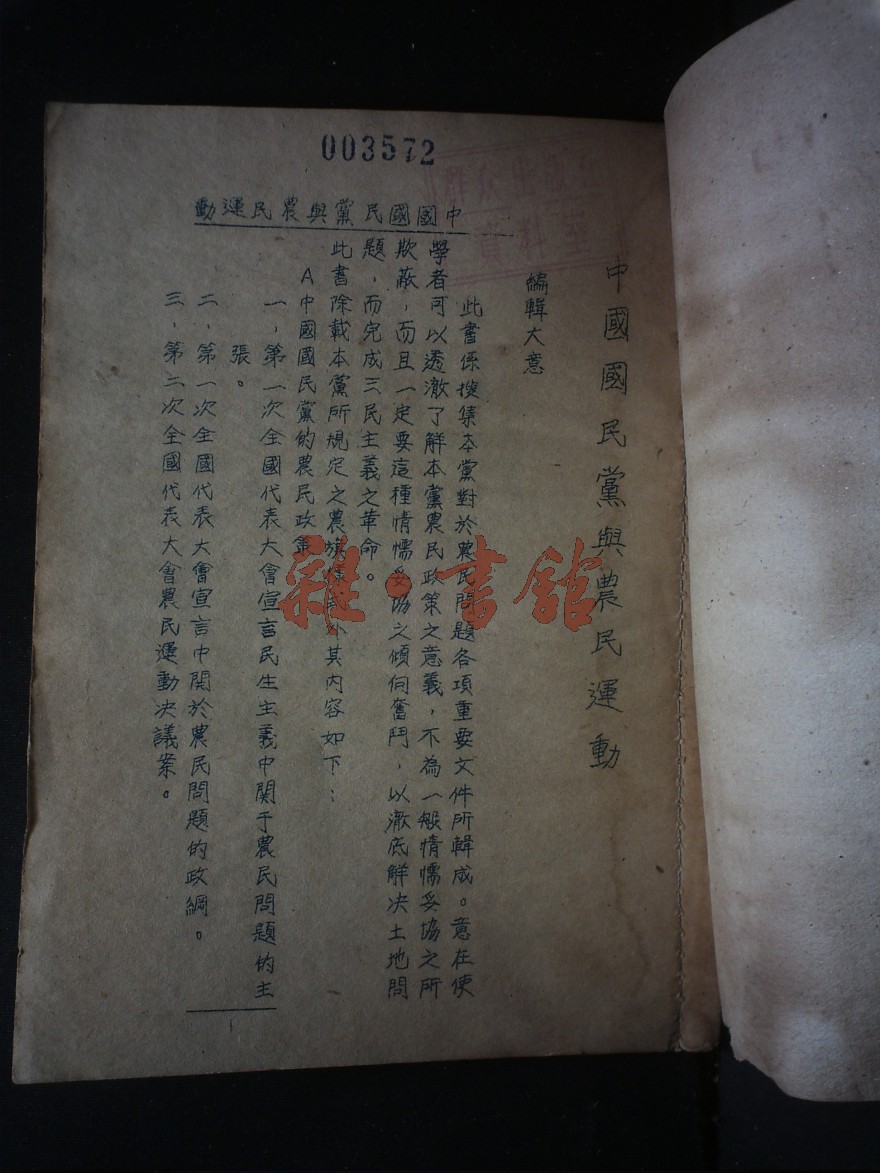 003572
中國國民黨與農民運動
中國國民黨與農民運動
編輯大意
此書係搜集本黨對於農民問題各項重要文件所輯成。意在使
學者可以透澈了解本黨農民政策之意義，不為一般情懦妥協之所
欺蔽，而且一定要這種情懦妥協之傾向奮鬥，以澈底解决土地問
題，而完成三民主義之革命。
此書除載本黨所規定之農旗樣式外其內容如下：
A中國國民黨的農民政策
一，第一次全國代表大會宣言民生主義中関于農民問題的主
張。
二，第一次全國代表大會宣言中関於農民問題的政綱。
三，第二次全國代表大會農民運動决議案。
1
雜·書館